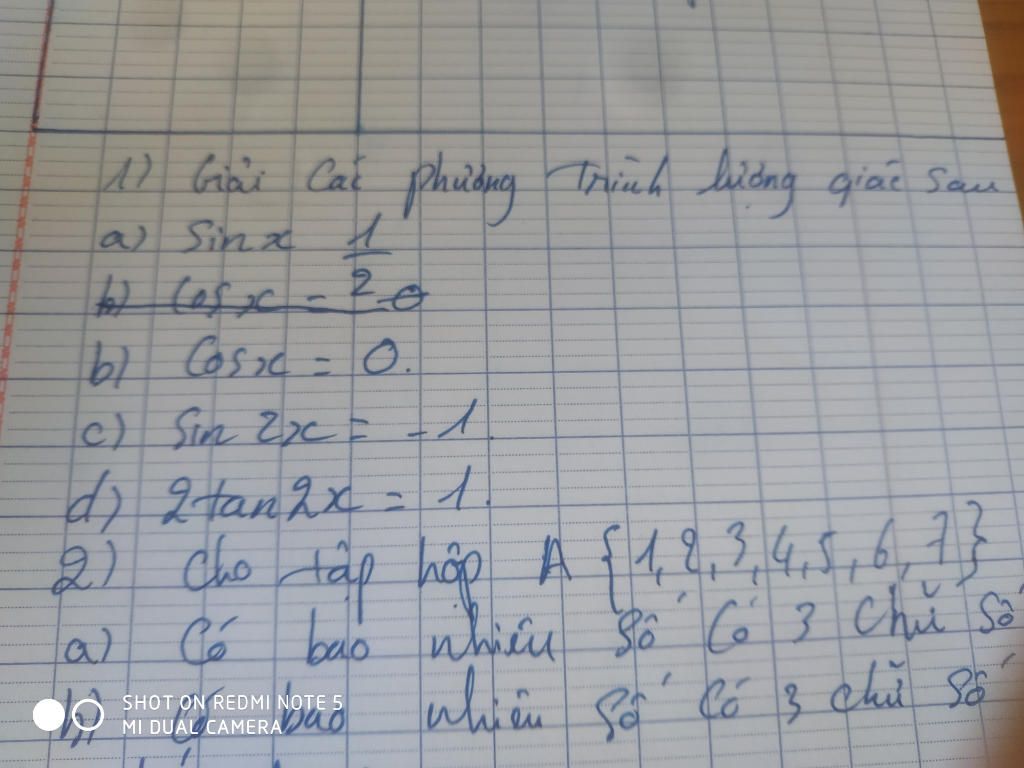 1) Giải các phương trình lượng giác sau
a) Sin x 1/2
b) Cos x = 0
b) Cos x = 0.
c) Sin 2x = -1.
d) 2tan 2x = 1.
2) Cho tập hợp A {1,2,3,4,5,6,7}
a) Có bao nhiêu số có 3 chữ số
b) Có bao nhiêu số có 3 chữ số
SHOT ON REDMI NOTE 5
MI DUAL CAMERA